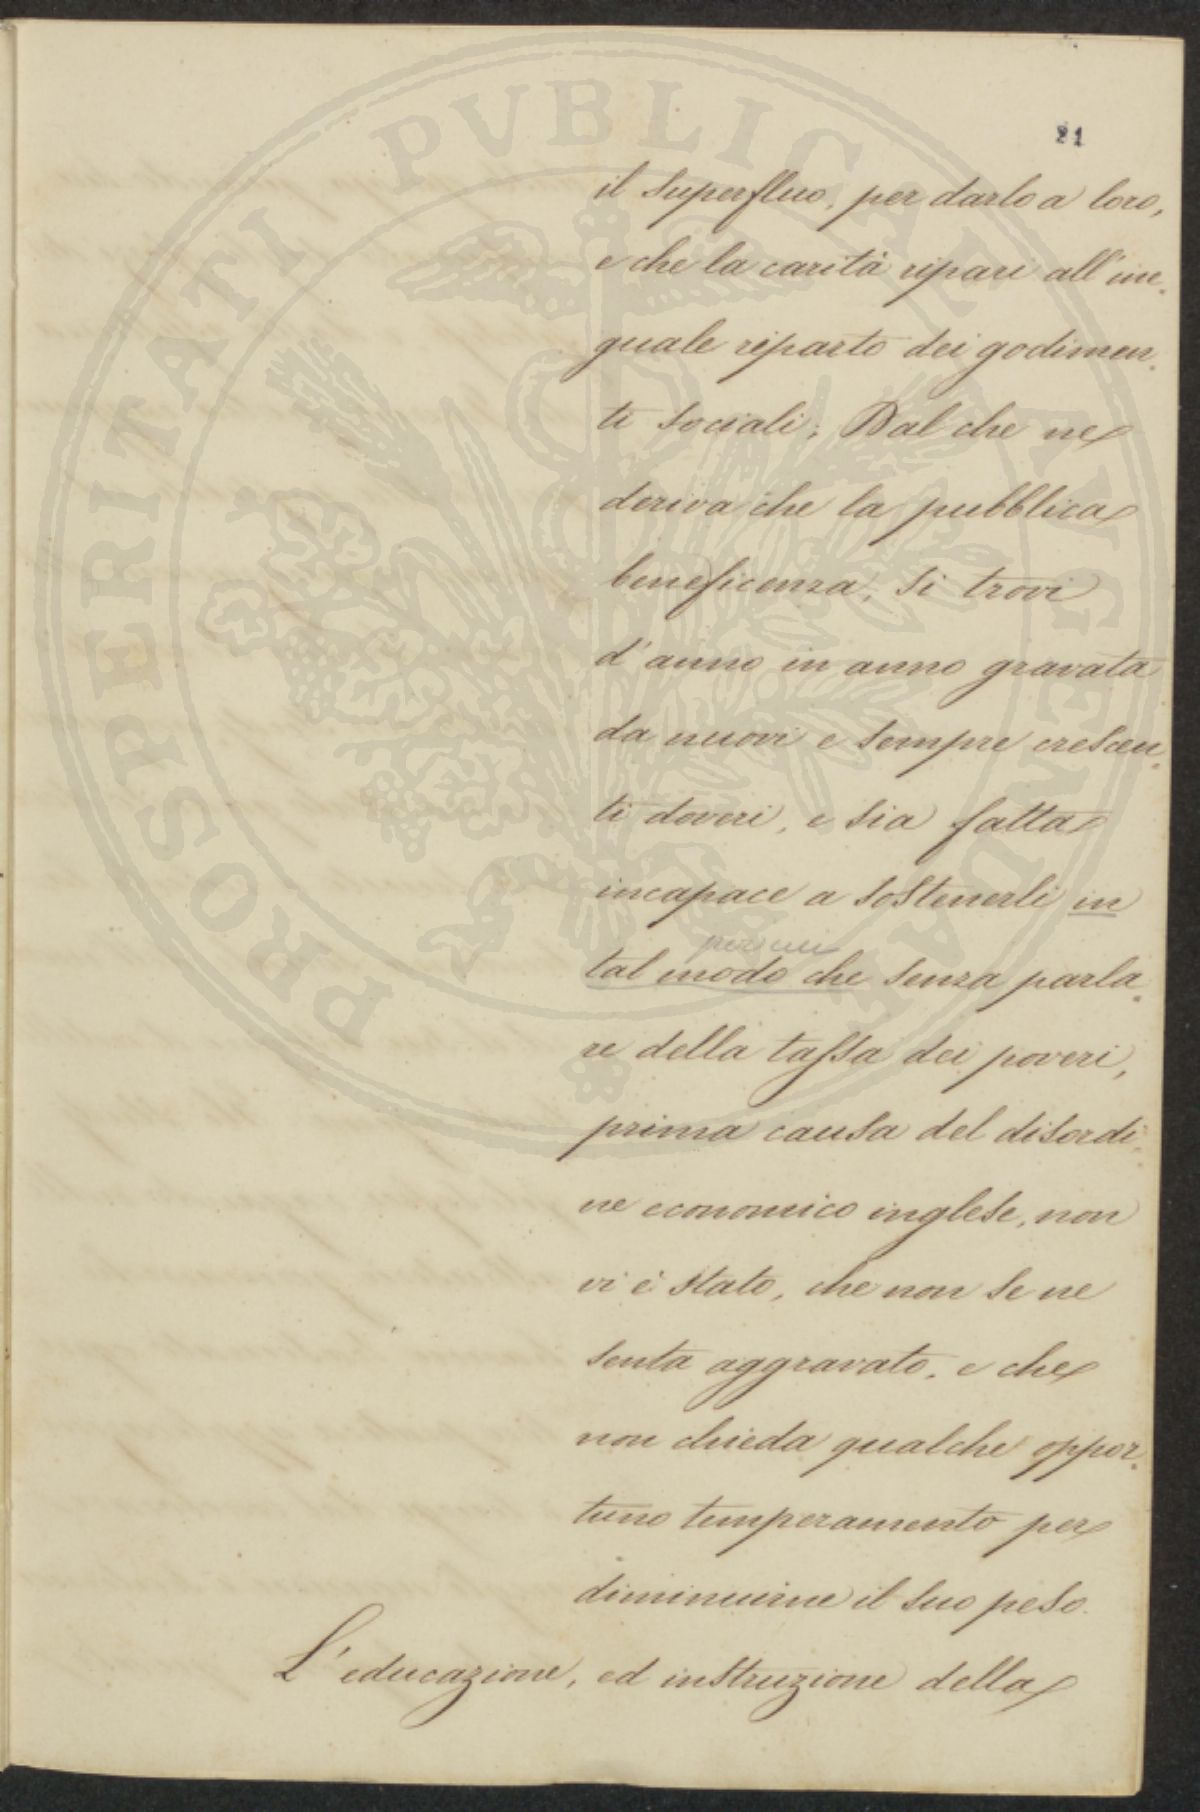 21
il superfluo, per darlo a loro,
e che la carità ripari all'ine.
guale riparto dei godimen.
ti sociali; Dal che ne
deriva che la pubblica
beneficenza, si trovi
d'anno in anno gravata
da nuovi e sempre crescen.
ti doveri, e sia fatta
incapace a sostenerli in
per cui
tal modo che senza parla.
re della tassa dei poveri,
prima causa del disordi.
ne economico inglese, non
vi è stato, che non se ne
senta aggravato, e che
non chieda qualche oppor.
tuno temperamento per
diminuirne il suo peso.
L'educazione, ed instruzione della
PROSPERITATI PUBLICAE AUGENDAE